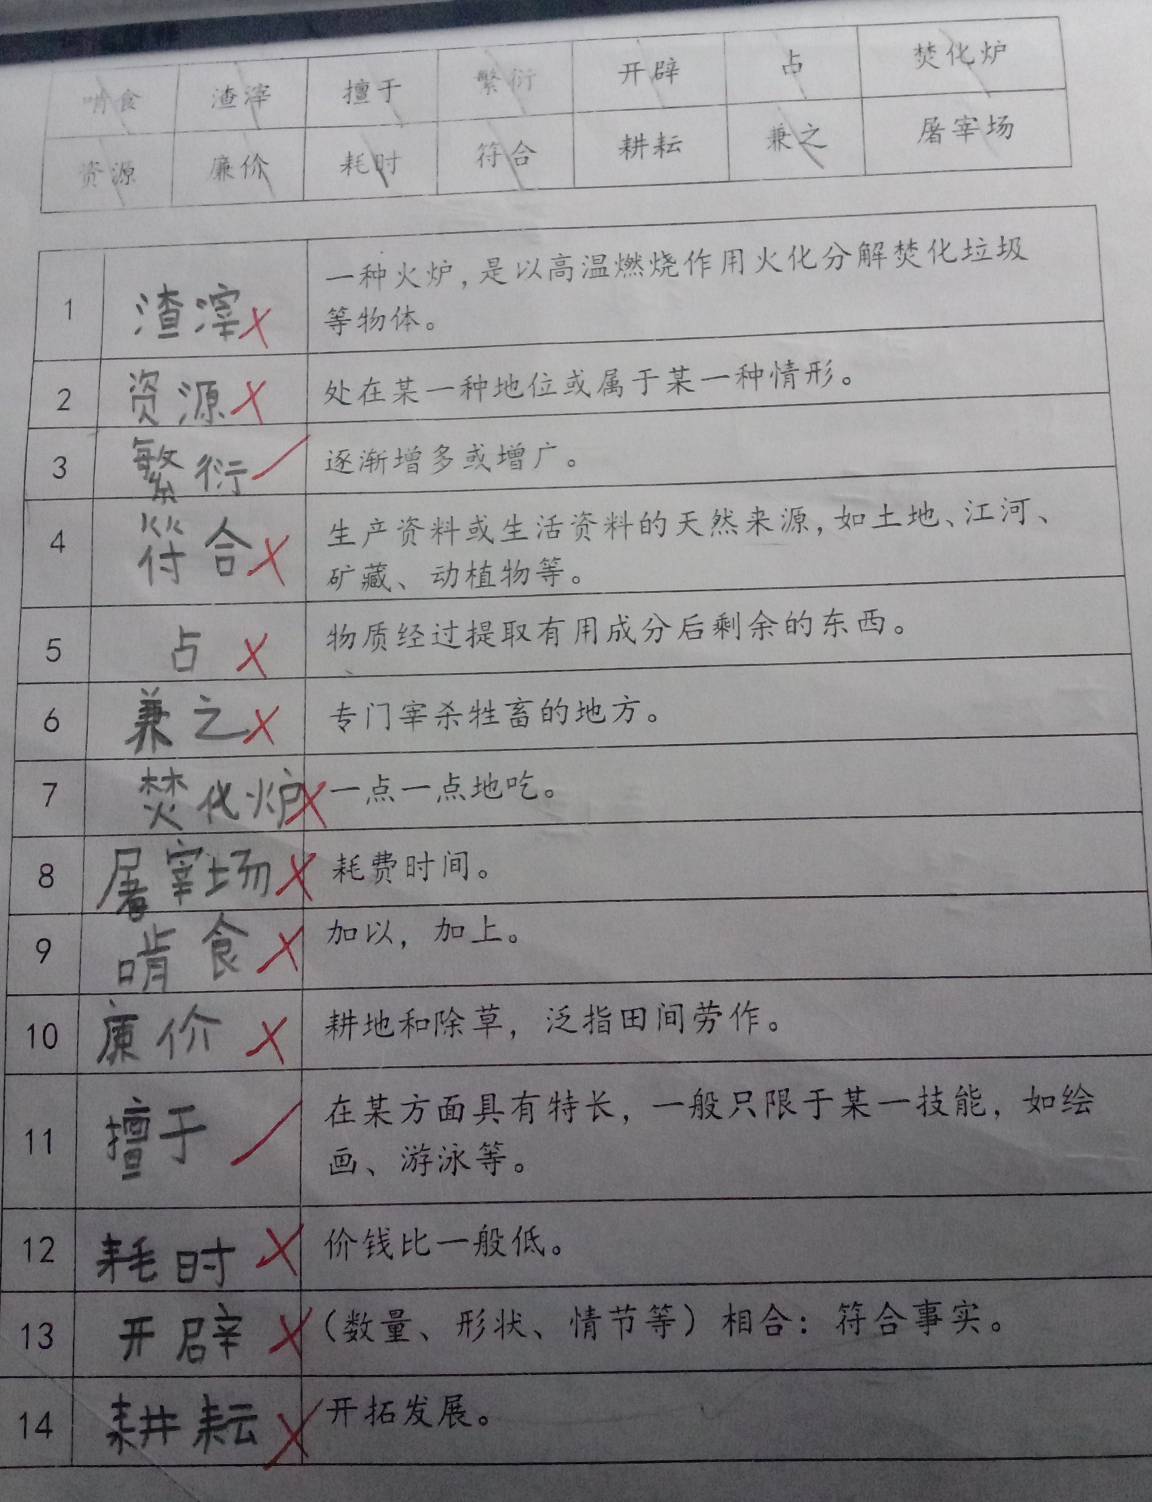 啃食 渣滓 擅于 繁衍 开辟 占 焚化炉
资源 廉价 耗时 符合 耕耘 兼之 屠宰场
1 渣滓 一种火炉,是以高温燃烧作用火化分解焚化垃圾
等物体。
2 资源 处在某一种地位或属于某一种情形。
3 繁衍 逐渐增多或增广。
4 符合 生产资料或生活资料的天然来源,如土地、江河、
矿藏、动植物等。
5 占 物质经过提取有用成分后剩余的东西。
6 兼之 专门宰杀牲畜的地方。
7 焚化炉 一点一点地吃。
8 屠宰场 耗费时间。
9 啃食 加以,加上。
10 廉价 耕地和除草,泛指田间劳作。
11 擅于 在某方面具有特长,一般只限于某一技能,如绘
画、游泳等。
12 耗时 价钱比一般低。
13 开辟 (数量、形状、情节等)相合:符合事实。
14 耕耘 开拓发展。